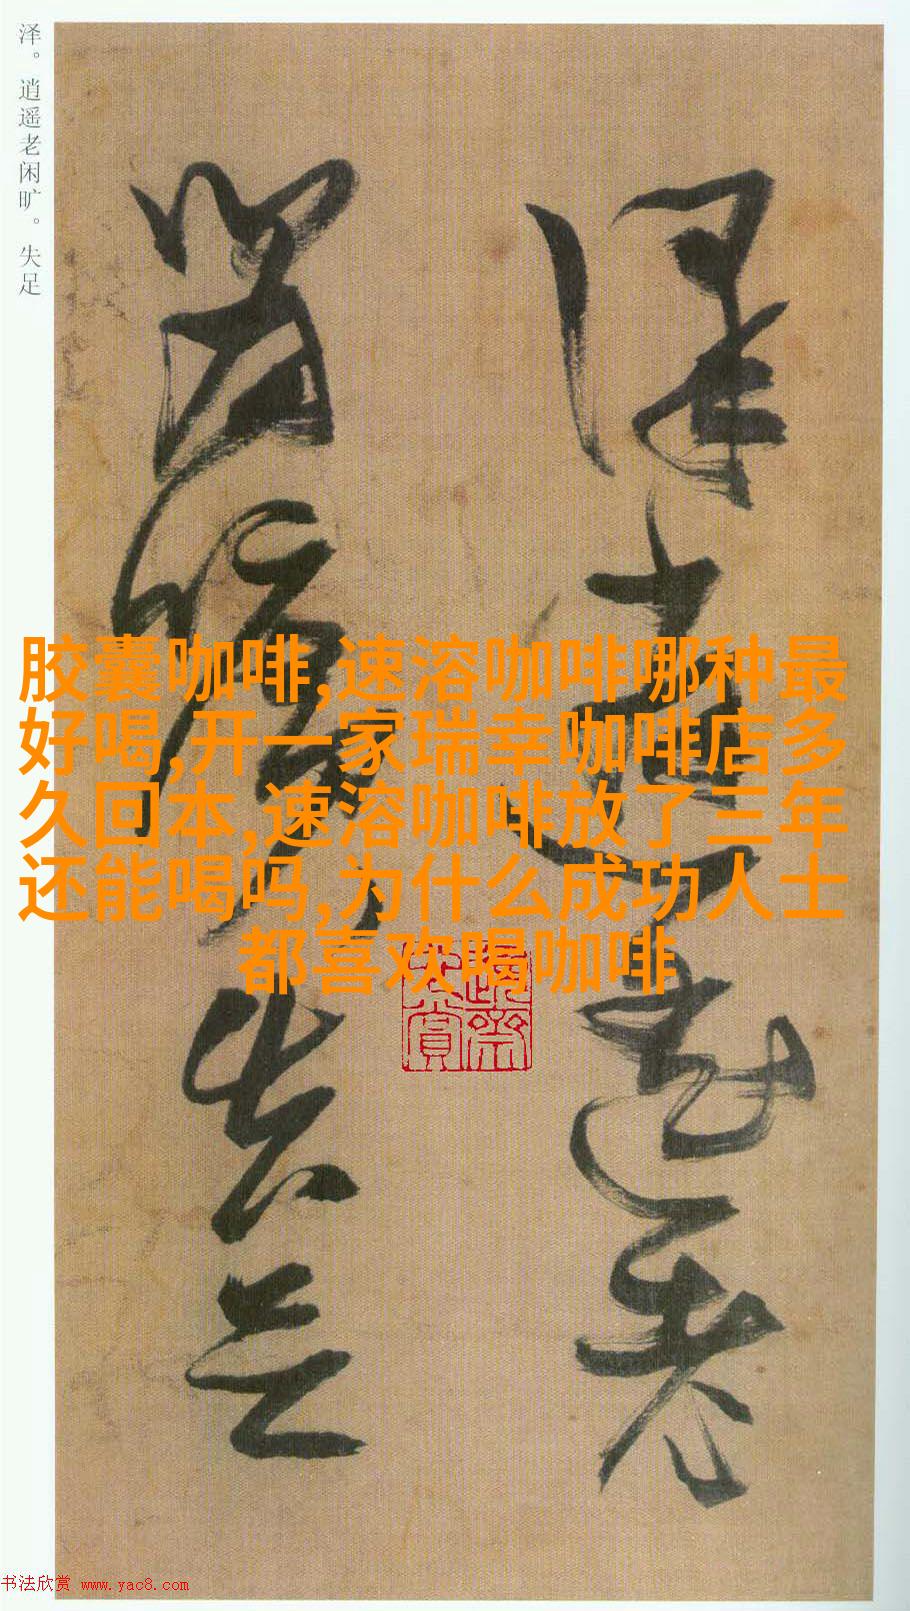 泽。逍遥老闲旷。失足
泽逍遥老
闲旷失足
胶囊咖啡,速溶咖啡哪种最
好喝,开一家瑞幸咖啡店多
久回本,速溶咖啡放了三年
还能喝吗,为什么成功人士
都喜欢喝咖啡
书法欣赏 www.yac8.com